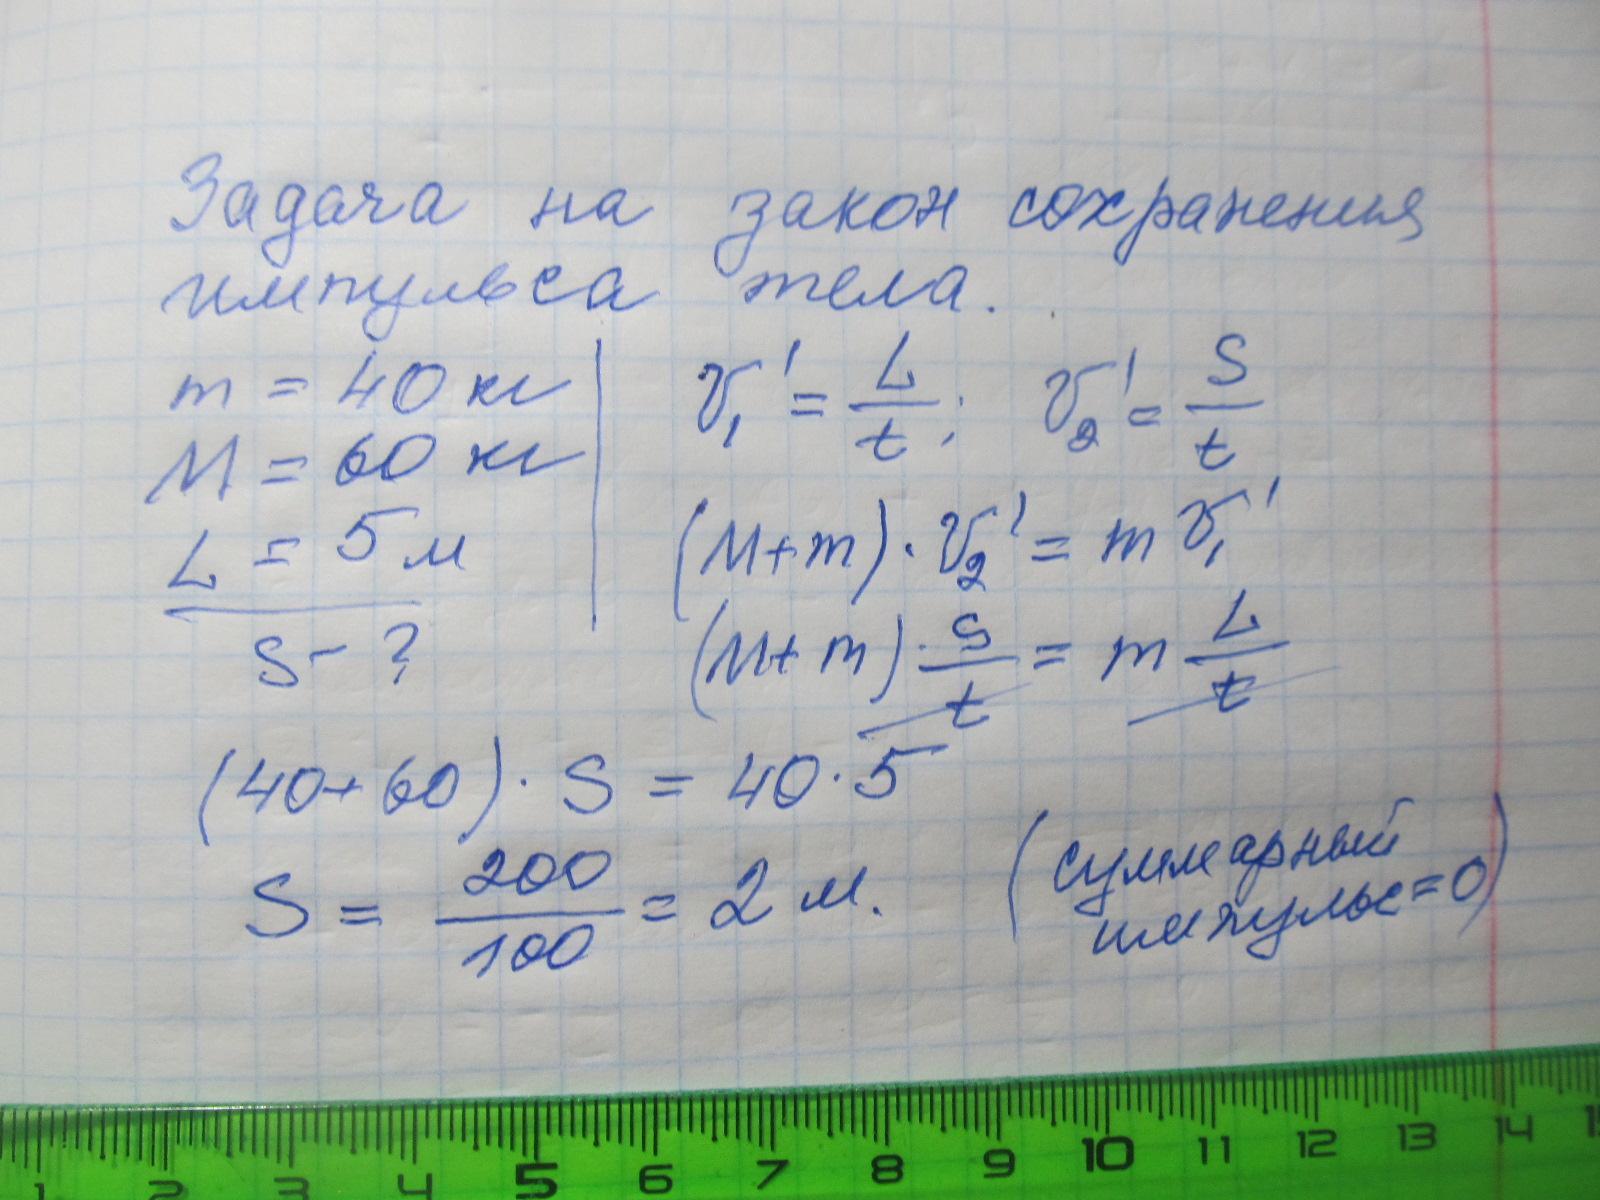 Задача на закон сохранения
импульса тела.
m = 40 кг
M = 60 кг
L = 5 м
S - ?
V₁' = L/t ; V₂' = S/t
(M+m) · V₂' = m V₁'
(M+m) · S/t = m L/t
(40+60) · S = 40 · 5
S = 200/100 = 2 м.
(суммарный
импульс = 0)
1 2 3 4 5 6 7 8 9 10 11 12 13 14 15